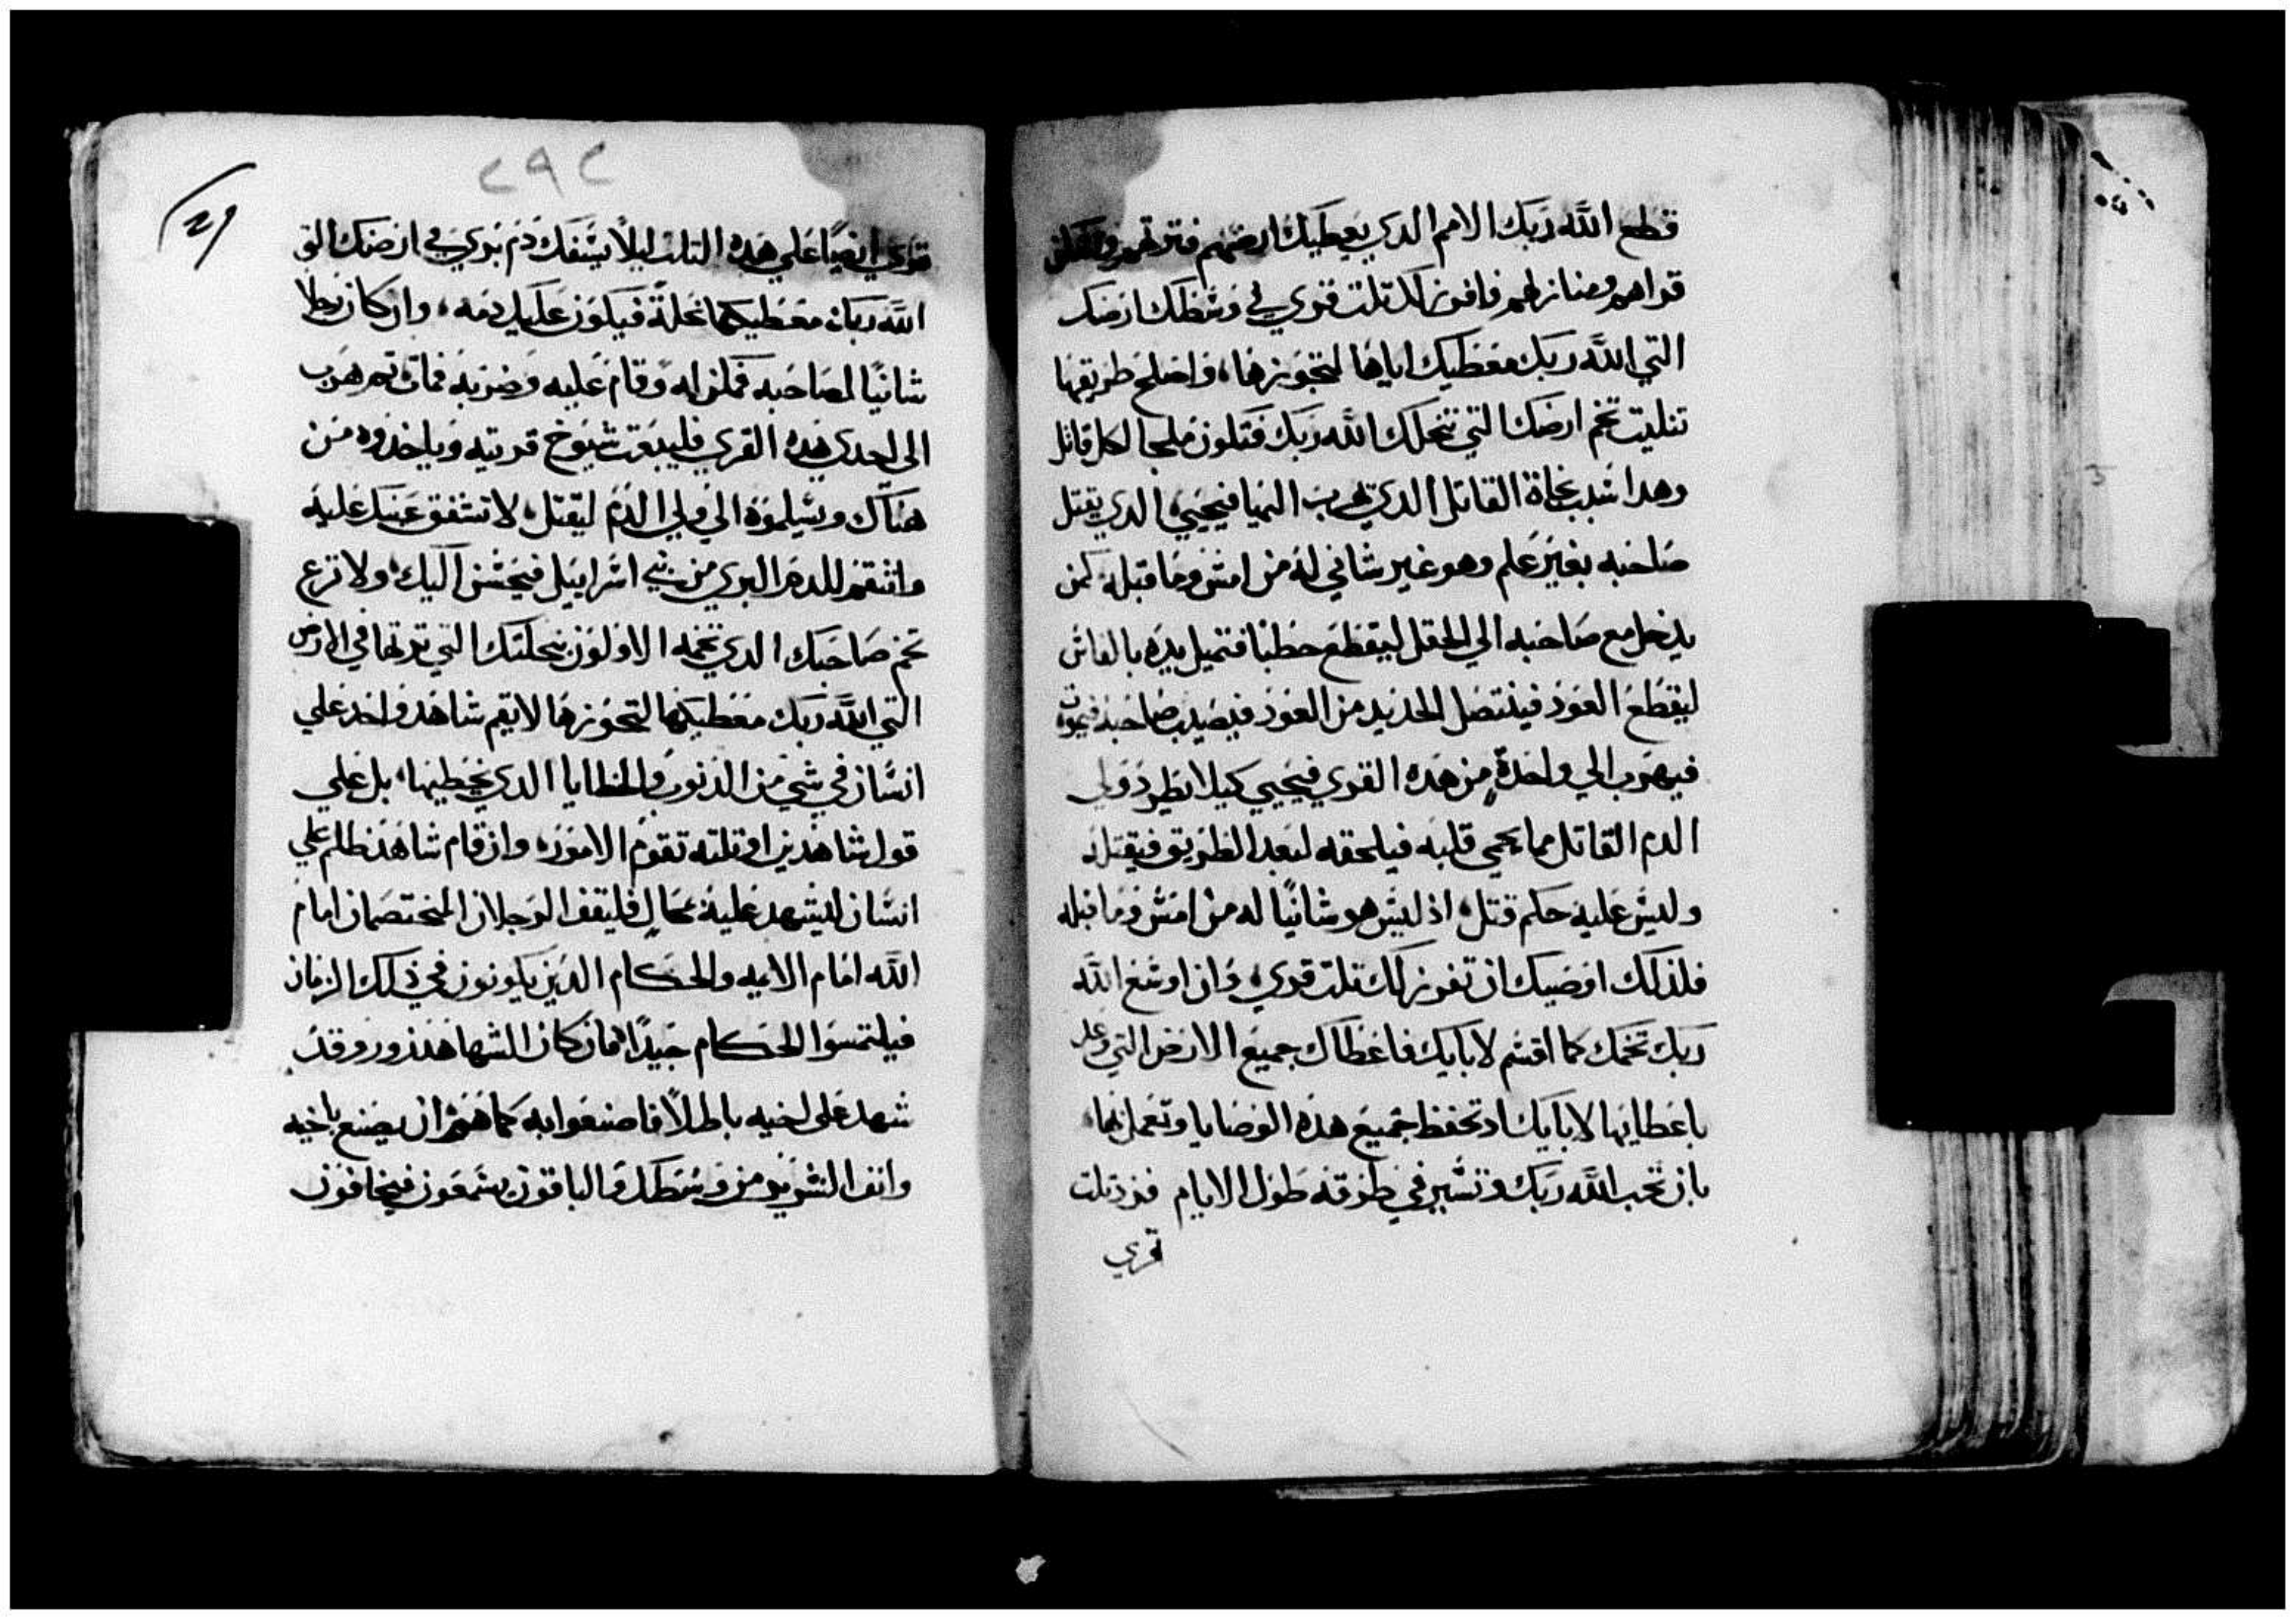 قطع الله ربك الامم الدي يعطيك ارضهم فترتهم وتسكن
قراهم ومنازلهم فافرز لك تلت قري في وسط تلك ارضك
التي الله ربك معطيك اياها لتجوزها، واصلح طريقها
تتليت تخم ارضك التي نتحلك الله ربك فتكون ملجا لكل قاتل
وهدا سبب نجاة القاتل الدي يهرب اليها فيحيي، الدي يقتل
صاحبه بغير علم وهو غير شاني له من امس وما قبله كمن
يدخل مع صاحبه الي الحقل ليقطع حطبا فتميل يده بالفاس
ليقطع العود فينتصل الحديد من العود فيصيب صاحبه فيموت
فيهرب الي واحدة من هده القري فيحيي كيلا يطرد ولي
الدم القاتل مما يحمي قلبه فيلحقه لبعد الطريق فيقتله
وليس عليه حكم قتل، اذ ليس هو شانيا له من امس وما قبله
فلذلك اوصيك ان تفرز لك تلت قري، وان اوسع الله
ربك تخمك كما اقسم لابايك فاعطاك جميع الارض التي وعد
باعطايها لابايك اد تحفظ جميع هذه الوصايا وتعمل بها،
بان تحب الله ربك وتسير في طرقه طول الايام فزد تلت
قري
٢٩٢
قري ايضا علي هده التلت ليلا يسفك دم بري في ارضك التي
الله ربك معطيكها نحلة فيكون عليك دمه، وان كان رجلا
شانيا لصاحبه فكمن له وقام عليه وضربه فمات تم هرب
الى احدي هده القري فليبعت شيوخ قريته وياخدوه من
هناك ويسلموه الي ولي الدم ليقتل، لا تشفق عينك عليه
وانتقم للدم البري من بني اسراييل فيحسن اليك، ولا تزع
تخم صاحبك الدي تخمه الاولون بنحلتك التي ترتها في الارض
التي الله ربك معطيكها لتحوزها لا يقم شاهد واحد علي
انسان في شي من الذنوب والخطايا الدي يخطيها، بل علي
قول شاهدين او تلته تقوم الامور، وان قام شاهد ظلم علي
انسان ليشهد عليه بمحال فليقف الرجلان المختصمان امام
الله امام الايمه والحكام الدين يكونون في ذلك الزمان
فيلتمسوا الحكام جيدا، فان كان الشهاهد زور وقد
شهد على اخيه باطلا فاصنعوا به كما هم ان يصنع باخيه
وانف الشرير من وسطك والباقون يسمعون فيخافون